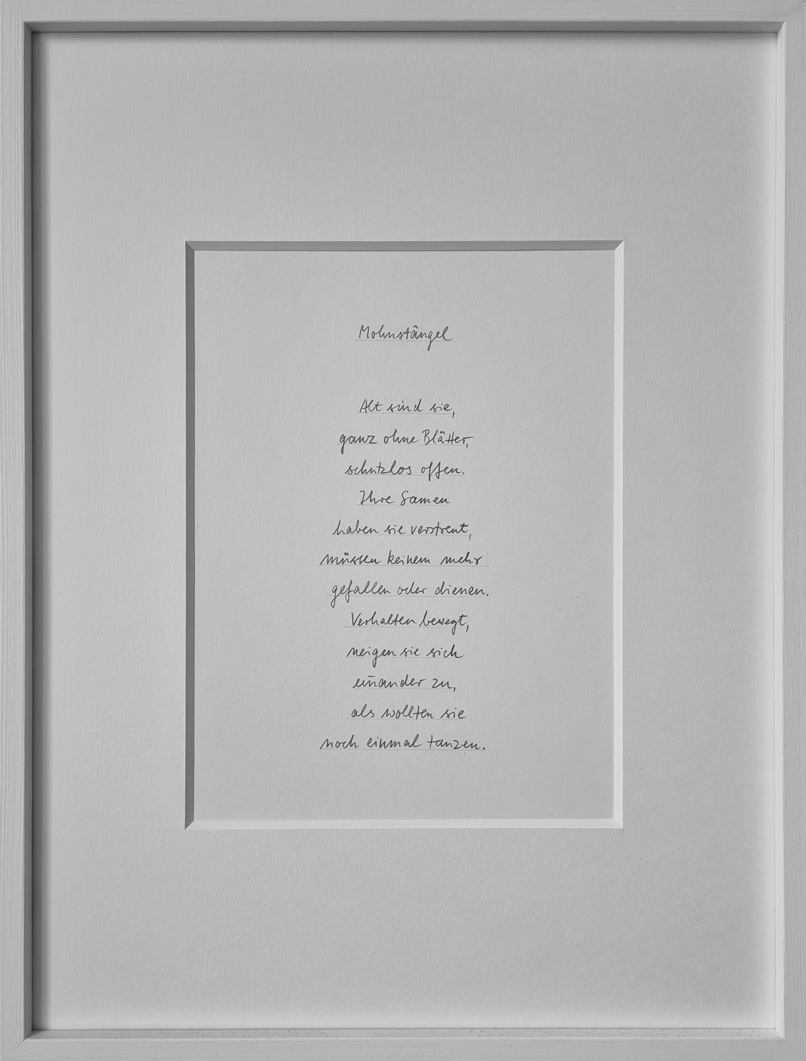 Mohnstängel
Alt sind sie,
ganz ohne Blätter,
schutzlos offen.
Ihre Samen
haben sie verstreut,
müssen keinem mehr
gefallen oder dienen.
Verhalten bewegt,
neigen sie sich
einander zu,
als wollten sie
noch einmal tanzen.